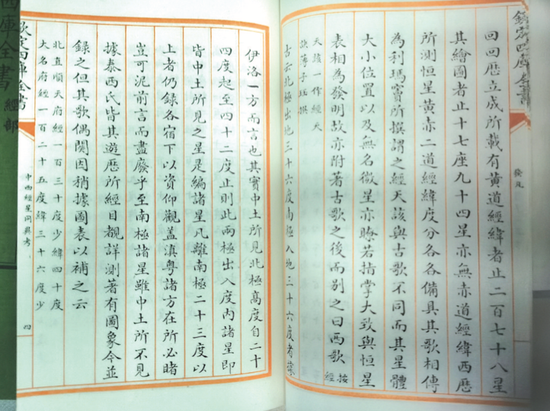 欽定四庫全書
回回厯立成所載有黃道經緯者止二百七十八星
其繪圖者止十七座九十四星亦無赤道經緯西厯
所測恒星黃赤二道經緯度分各各備具其歌相傳
為利瑪竇所撰謂之經天該與古歌不同而其星體
大小位置以及無名微星亦瞭若指掌大致與恒星
表相為發明故亦附著古歌之後而别之曰西歌按
天該一作經天
古云北極出地三十六度南極入地三十六度者據
伊洛一方而言也其實中土所見北極高度自二十
四度起至四十二度止則此兩極出入度內諸星即
皆中土所見之星是編諸星凡離南極二十三度以
上者仍錄各宿下以資仰觀蓋滇粵諸方在所必睹
豈可泥前言而盡廢乎至南極諸星雖中土所不見
據泰西氏皆其遊歷所經目覩詳測著有圖象今並
錄之但其歌偶闕因稍據圖表以補之云
北直順天府經一百三十度少緯四十度
大名府經一百二十五度緯三十六度少
中西經星同異考
四
欽定四庫全書
四庫全書
經部